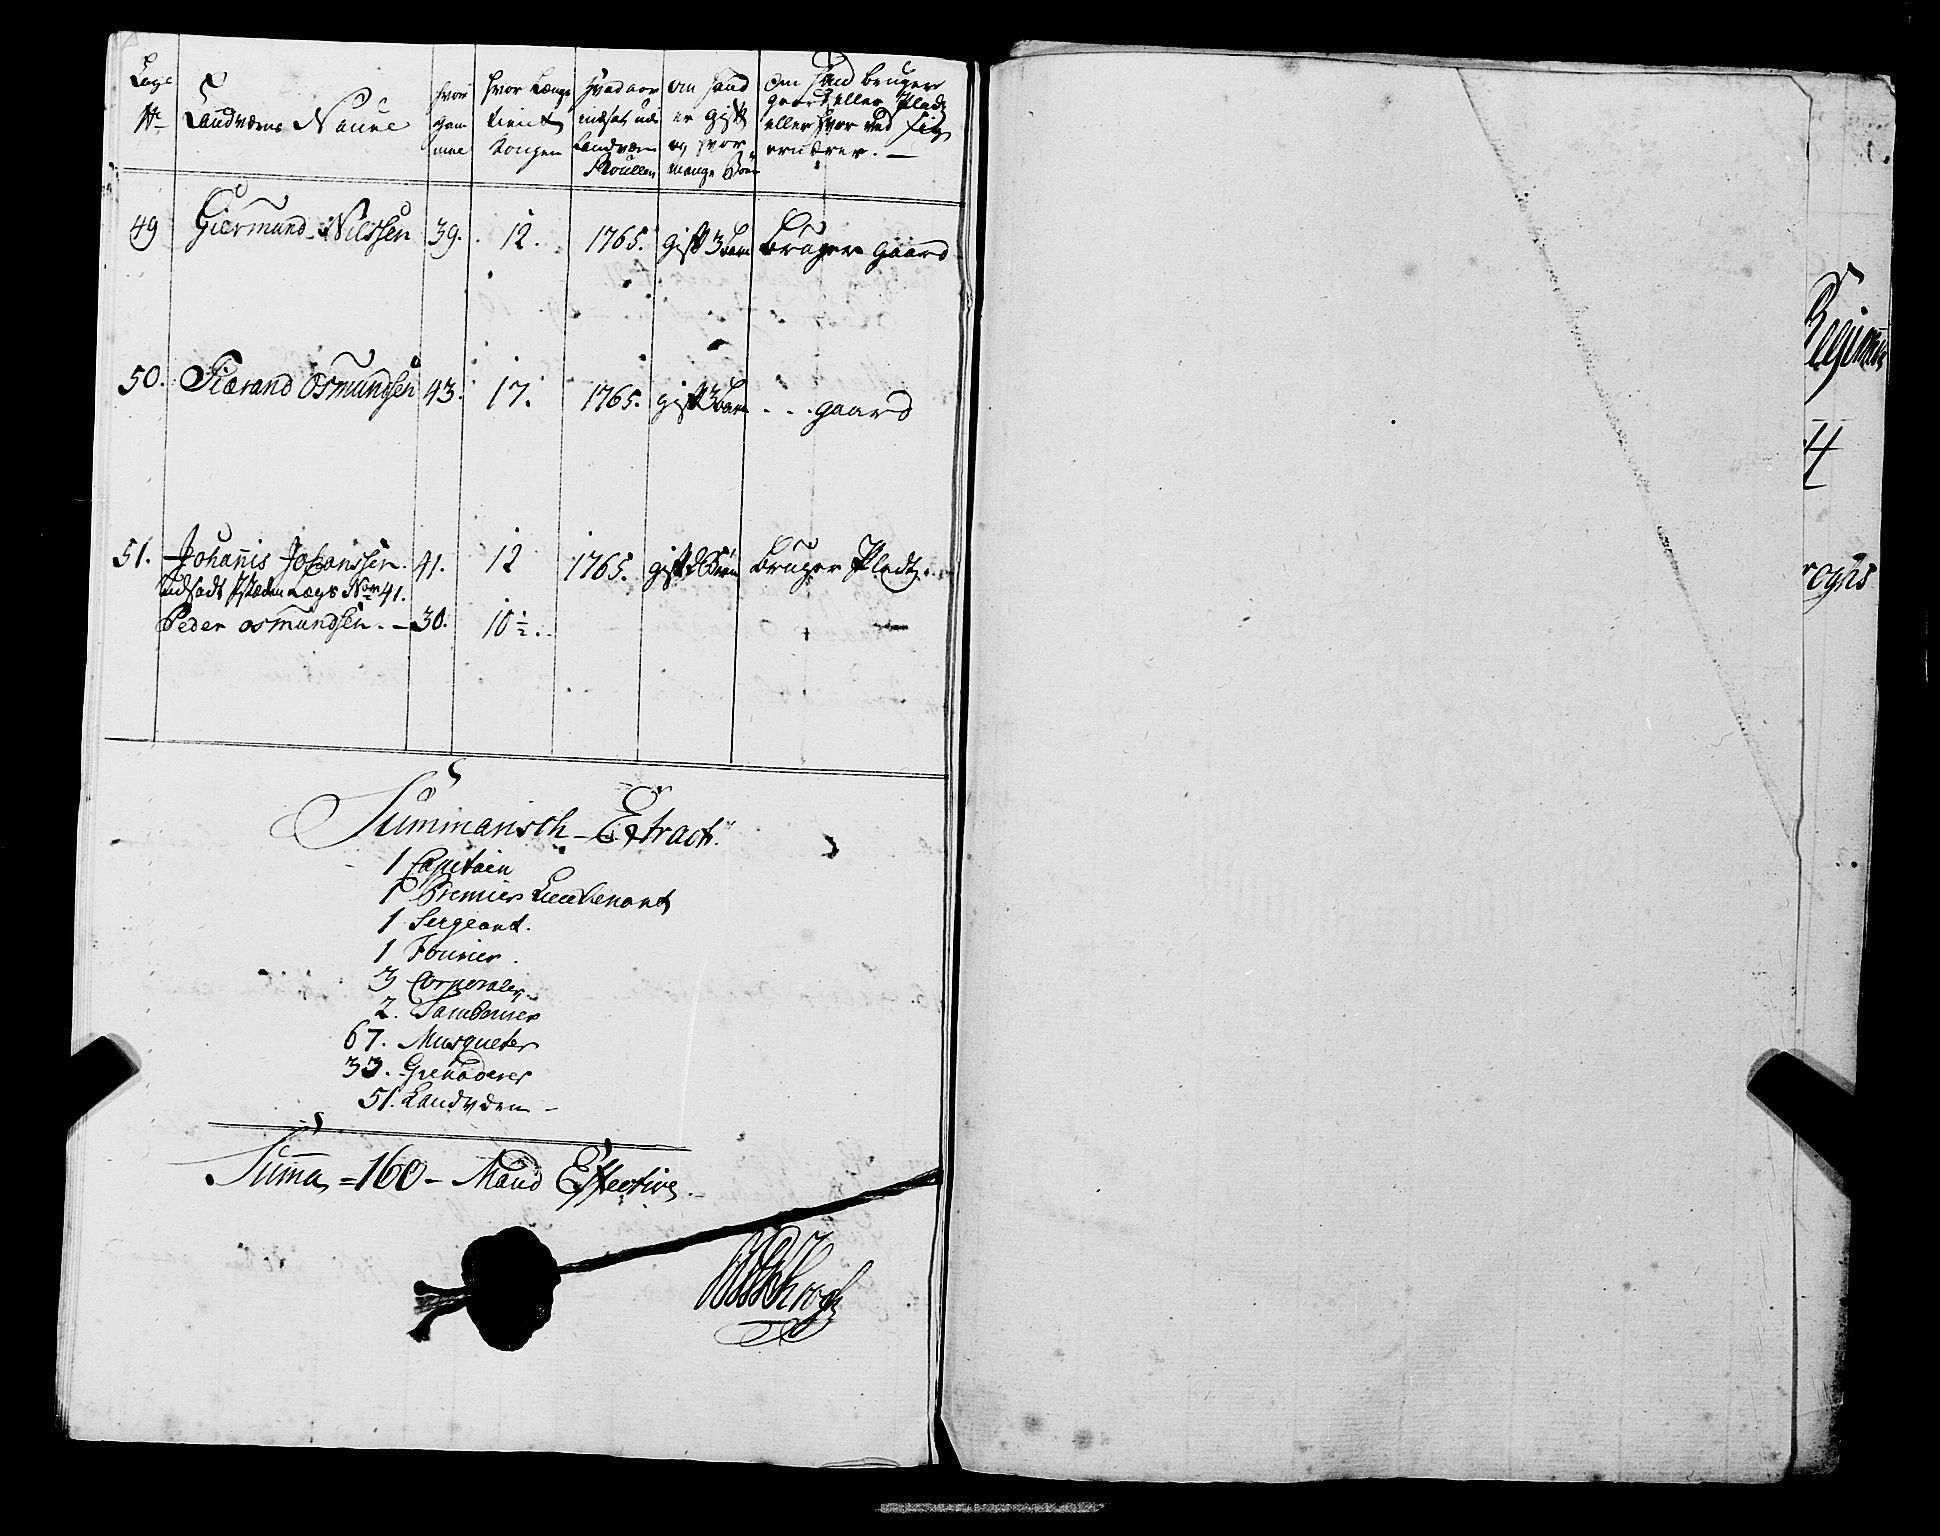 Legs No Landværns Navne hvor gammel hvor Længe tient Kongen hvad aar indsat udi Landværn Roullen om hand er gift og hvor mange Børn Om hand bruger gaard eller Pladz eller hvor ved sig ernærer. —
49 Giermund Nilssen 39. 12. 1765. gift 3 barn Bruger gaard
50. Tiærand Osmundsen 43. 17. 1765. gift 3 barn . . . gaard
51. Johannis Johanssen. 41. 12 1765. gift Børn Bruger Pladz.
Udsadt I steden Legs No 41.
Peder Osmundsen. — 30. 10½.
Summarisch Extract.
1 Capitain
1 Premier Lieutenant
1 Sergeant.
1 Fourier.
3 Corporaler.
2. Tambourer
67. Musqueter
33. Grenaderer
51. Landværn —
Summa = 160 — Mand Effective.
Krogh
Regiment
roghs